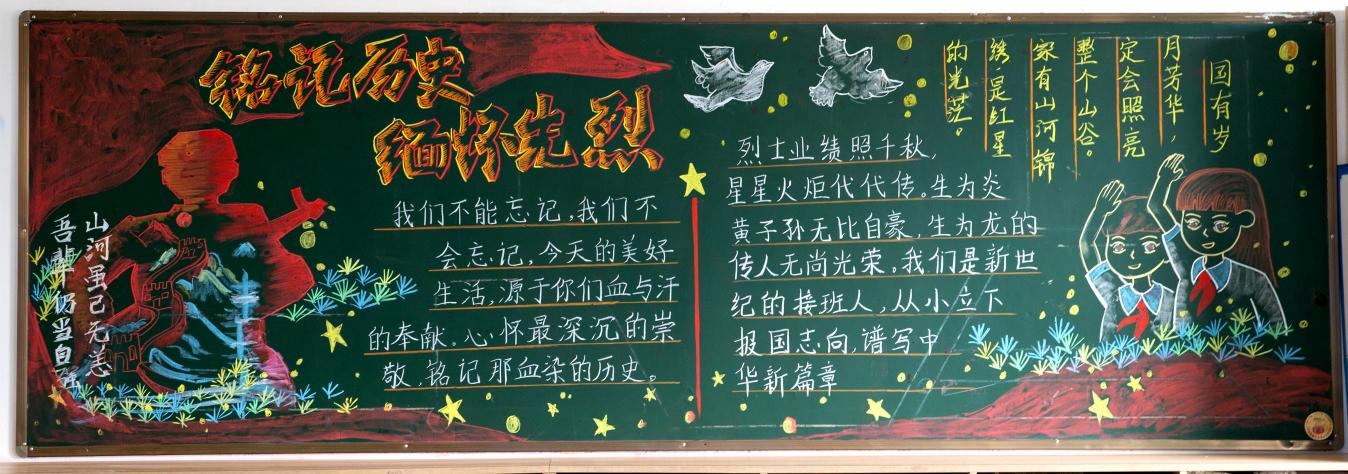 铭记历史
缅怀先烈
山河虽已无恙
吾辈仍当自强
我们不能忘记,我们不
会忘记,今天的美好
生活,源于你们血与汗
的奉献。心怀最深沉的崇
敬,铭记那血染的历史。
烈士业绩照千秋,
星星火炬代代传。生为炎
黄子孙无比自豪,生为龙的
传人无尚光荣。我们是新世
纪的接班人,从小立下
报国志向,谱写中
华新篇章
国有岁
月芳华,
定会照亮
整个山谷。
家有山河锦
绣是红星
的光芒。